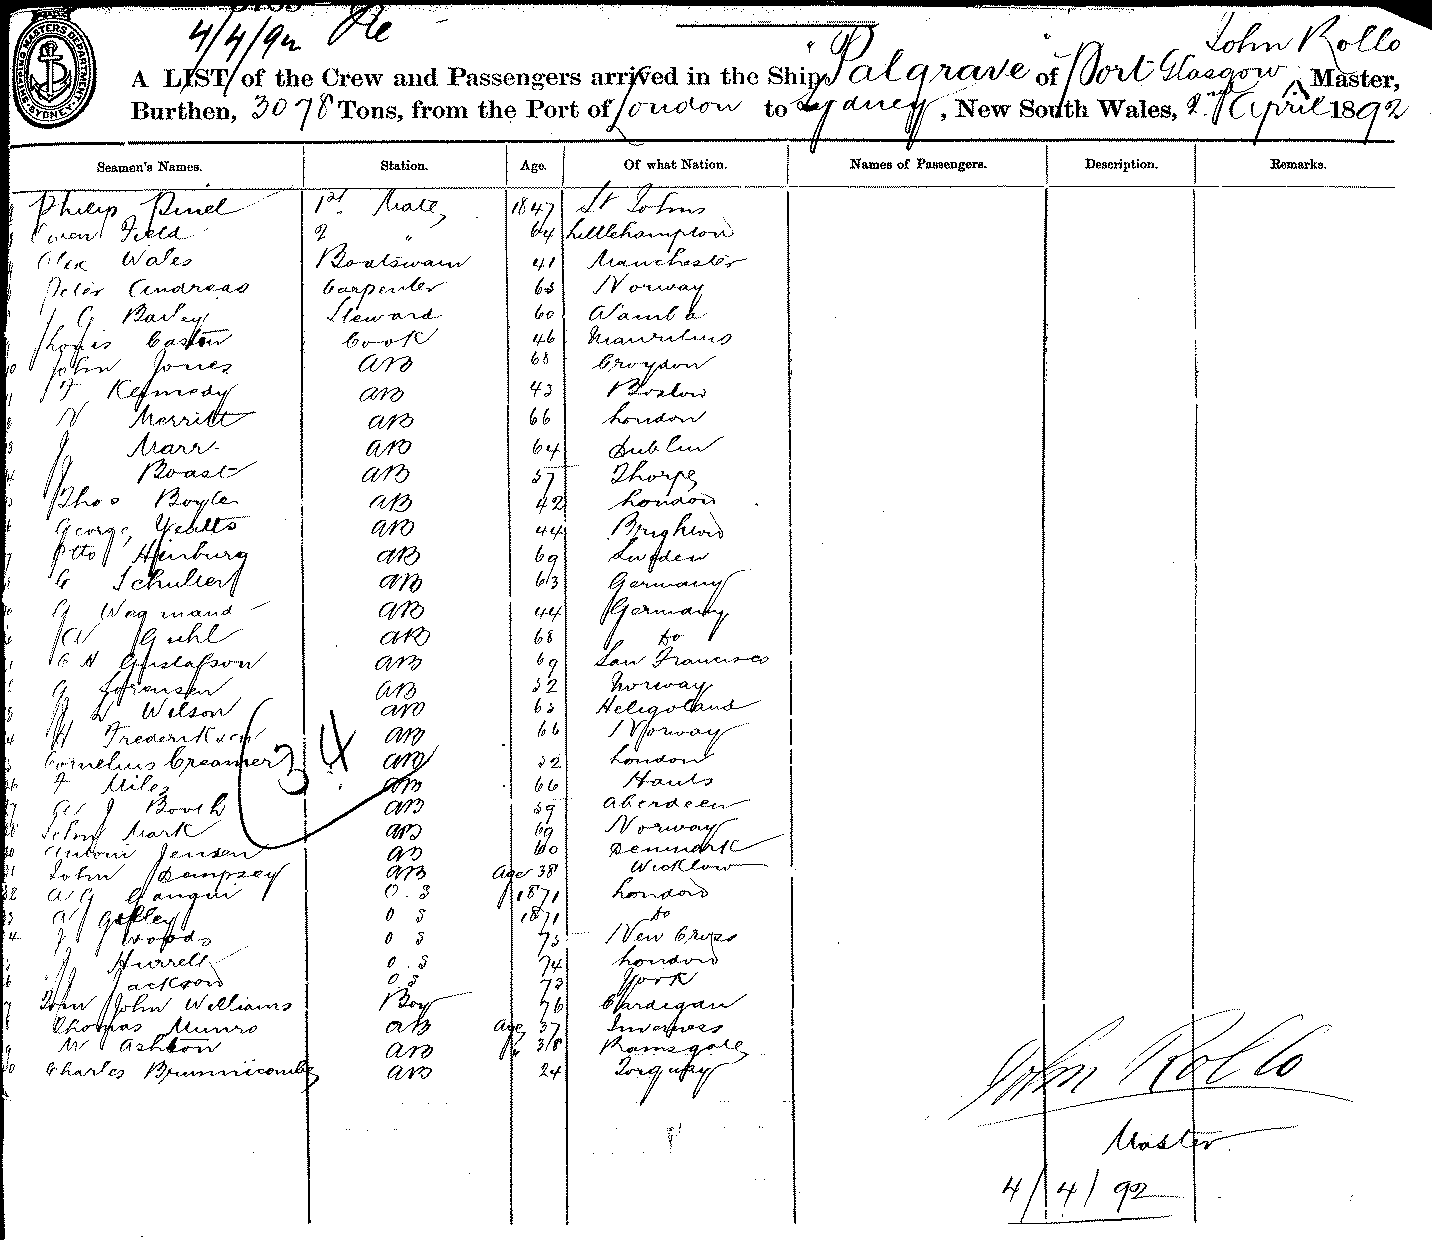 4/4/92
A LIST of the Crew and Passengers arrived in the Ship "Palgrave" of Port Glasgow, John Rollo Master,
Burthen, 3078 Tons, from the Port of London to Sydney, New South Wales, 2nd April 1892
Seamen's Names. Station. Age. Of what Nation. Names of Passengers. Description. Remarks.
Philip Pinel 1st Mate 1847 St Johns
Owen Field 2 " 64 Littlehampton
Alex Wales Boatswain 41 Manchester
Peter Andreas Carpenter 63 Norway
Barley Steward 60
Caston Cook 46 Mauritius
10 John Jones AB 68 Croydon
11 F Kennedy AB 43 Boston
N Merritt AB 66 London
J Marr AB 64 Dublin
J Boast AB 57 Thorpe
Thos Boyle AB 42 London
George Yeatts AB 44 Brighton
Otto AB 69 Sweden
C Schulter AB 63 Germany
G Wagmand AB 44 Germany
Guhl AB 68 do
C A Gustafson AB 69 San Francisco
G Sorensen AB 52 Norway
Wilson AB 63 Heligoland
H Frederiksen AB 66 Norway
Cornelius Creamer AB 52 London
34
F Miles AB 66 Hants
J Booth AB 59 Aberdeen
John Mark AB 69 Norway
Antoni Jensen AB 60 Denmark
John Dempsey AB Age 38 Wicklow
A G O.S 1871 London
A O S 1871 do
J Woods O S 75 New Cross
J Hurrell O.S 74 London
J Jackson O S 73 York
John Williams Boy 76 Cardigan
Thomas Munro AB Age 37 Inverness
W Ashton AB 38 Ramsgate
Charles Brunnicombe AB 24 Torquay
John Rollo
Master
4/4/92